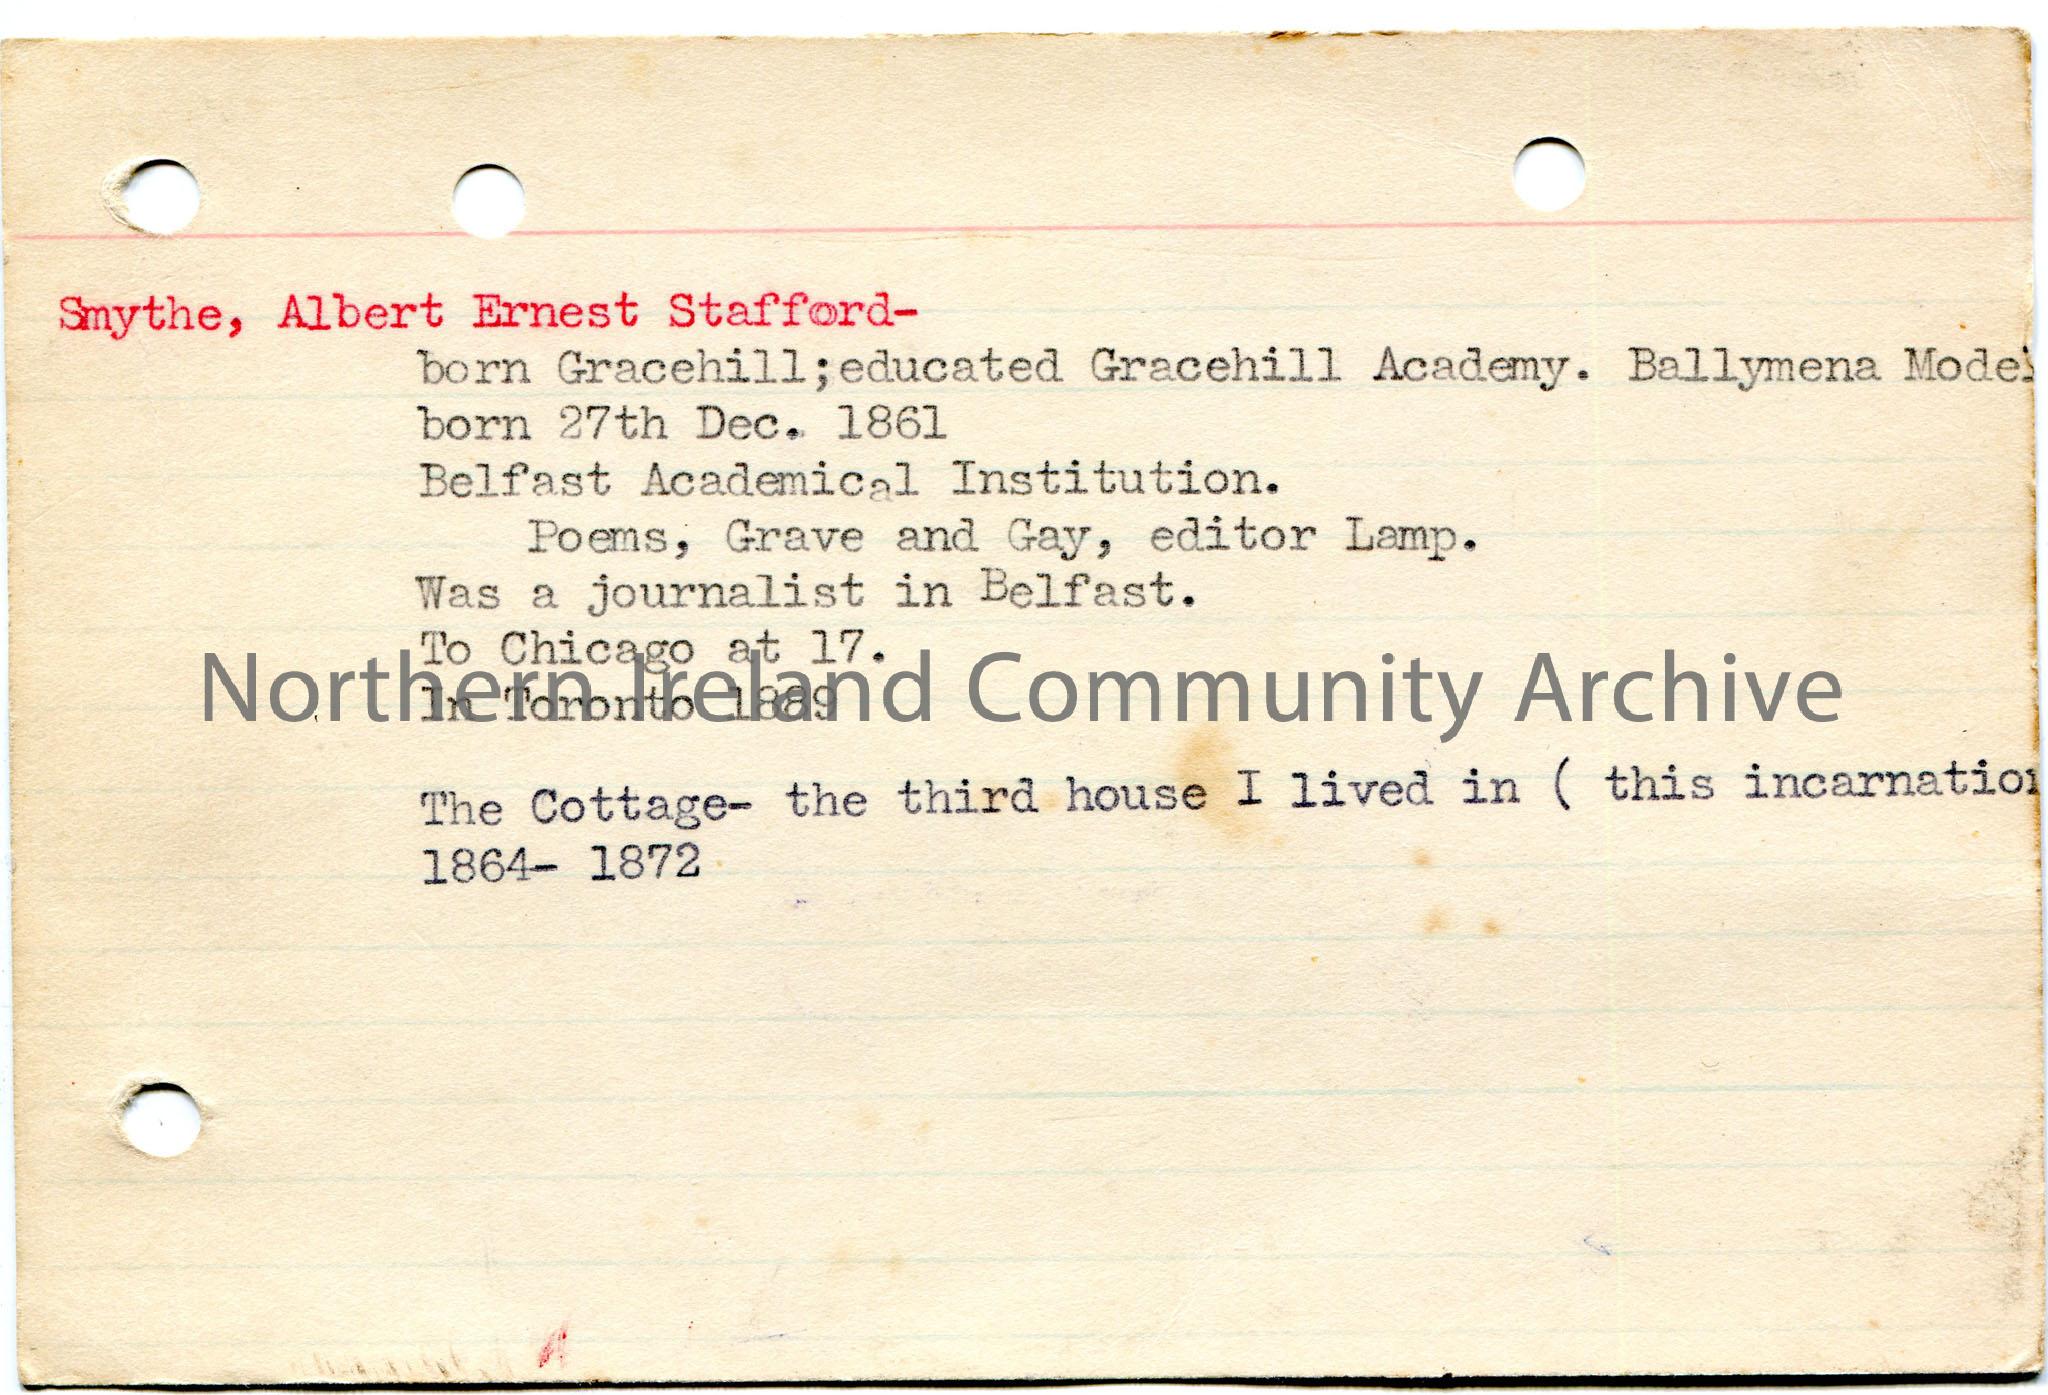 Smythe, Albert Ernest Stafford-
born Gracehill;educated Gracehill Academy. Ballymena Model
born 27th Dec. 1861
Belfast Academical Institution.
Poems, Grave and Gay, editor Lamp.
Was a journalist in Belfast.
To Chicago at 17.
In Toronto 1889
Northern Ireland Community Archive
The Cottage- the third house I lived in ( this incarnation
1864- 1872